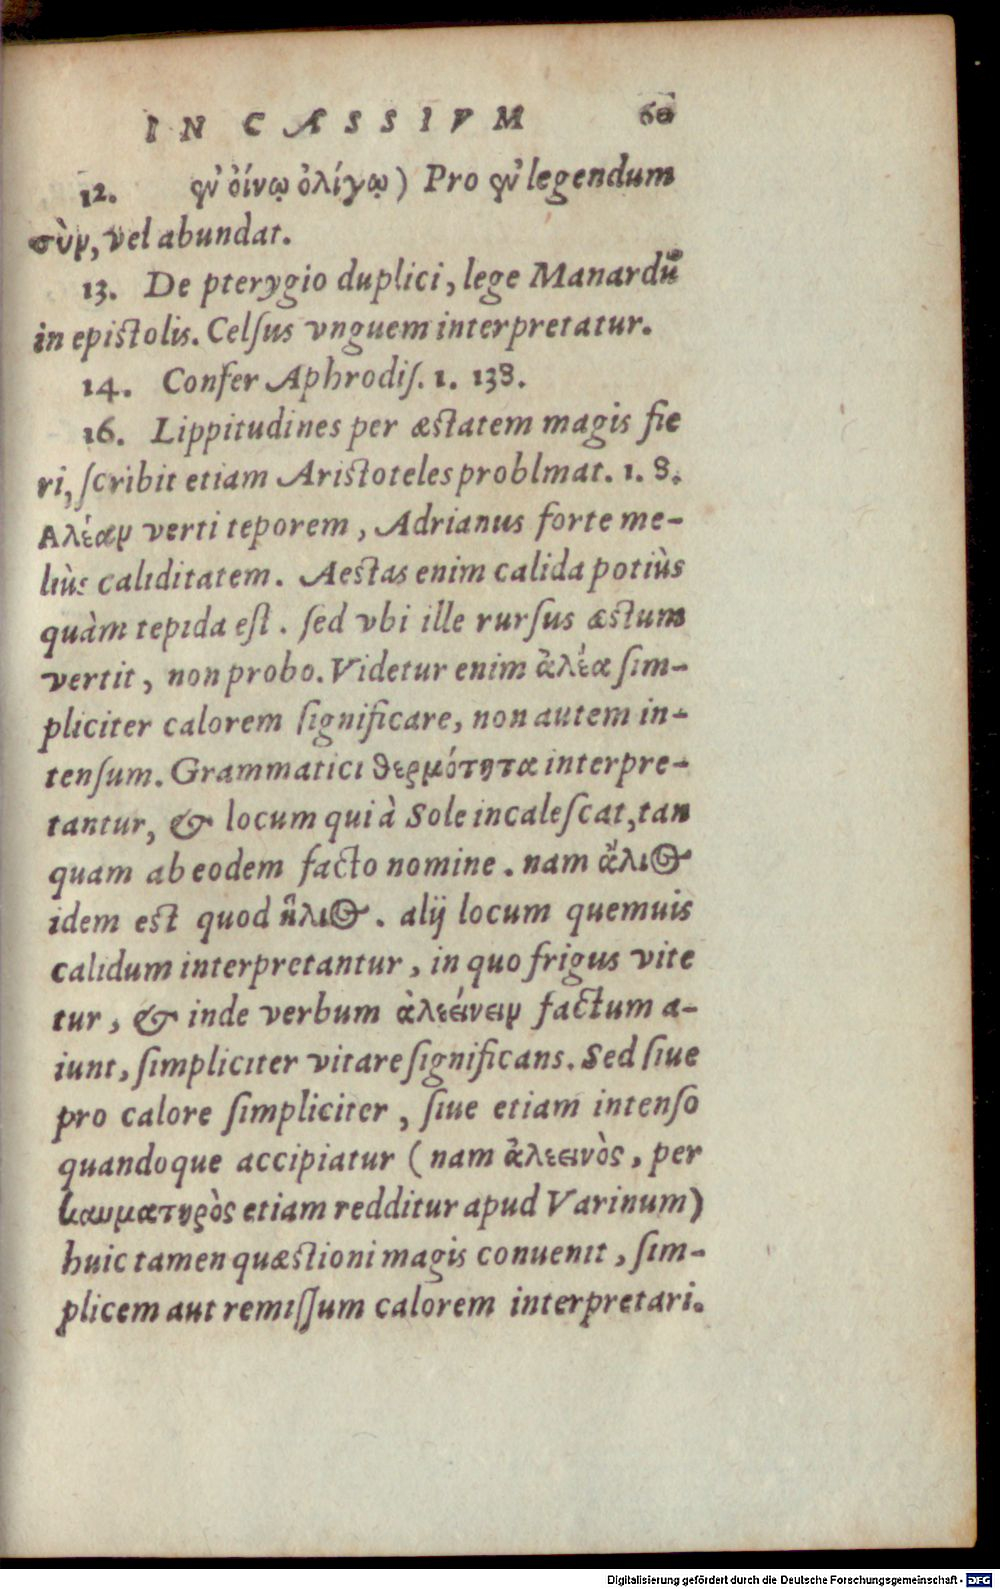 IN CASSIVM 60
12. ἐν οἴνῳ ὀλίγῳ) Pro ἐν legendum
σὺν, vel abundat.
13. De pterygio duplici, lege Manardū
in epistolis. Celſus vnguem interpretatur.
14. Confer Aphrodiſ. 1. 138.
16. Lippitudines per æstatem magis fie
ri, ſcribit etiam Aristoteles problmat. 1. 8.
Αλέαν verti teporem, Adrianus forte me-
liùs caliditatem. Aestas enim calida potiùs
quàm tepida eſt. ſed vbi ille rurſus æstum
vertit, non probo. Videtur enim ἀλέα ſim-
pliciter calorem ſignificare, non autem in-
tenſum. Grammatici θερμότητα interpre-
tantur, & locum qui à Sole incaleſcat, tan
quam ab eodem facto nomine. nam ἅλιος
idem est quod ἥλιος. alij locum quemuis
calidum interpretantur, in quo frigus vite
tur, & inde verbum ἀλεείνειν factum a-
iunt, ſimpliciter vitare ſignificans. Sed ſiue
pro calore ſimpliciter, ſiue etiam intenſo
quandoque accipiatur (nam ἀλεεινὸς, per
καυματηρὸς etiam redditur apud Varinum)
huic tamen quæstioni magis conuenit, ſim-
plicem aut remiſſum calorem interpretari.
Digitalisierung gefördert durch die Deutsche Forschungsgemeinschaft - DFG